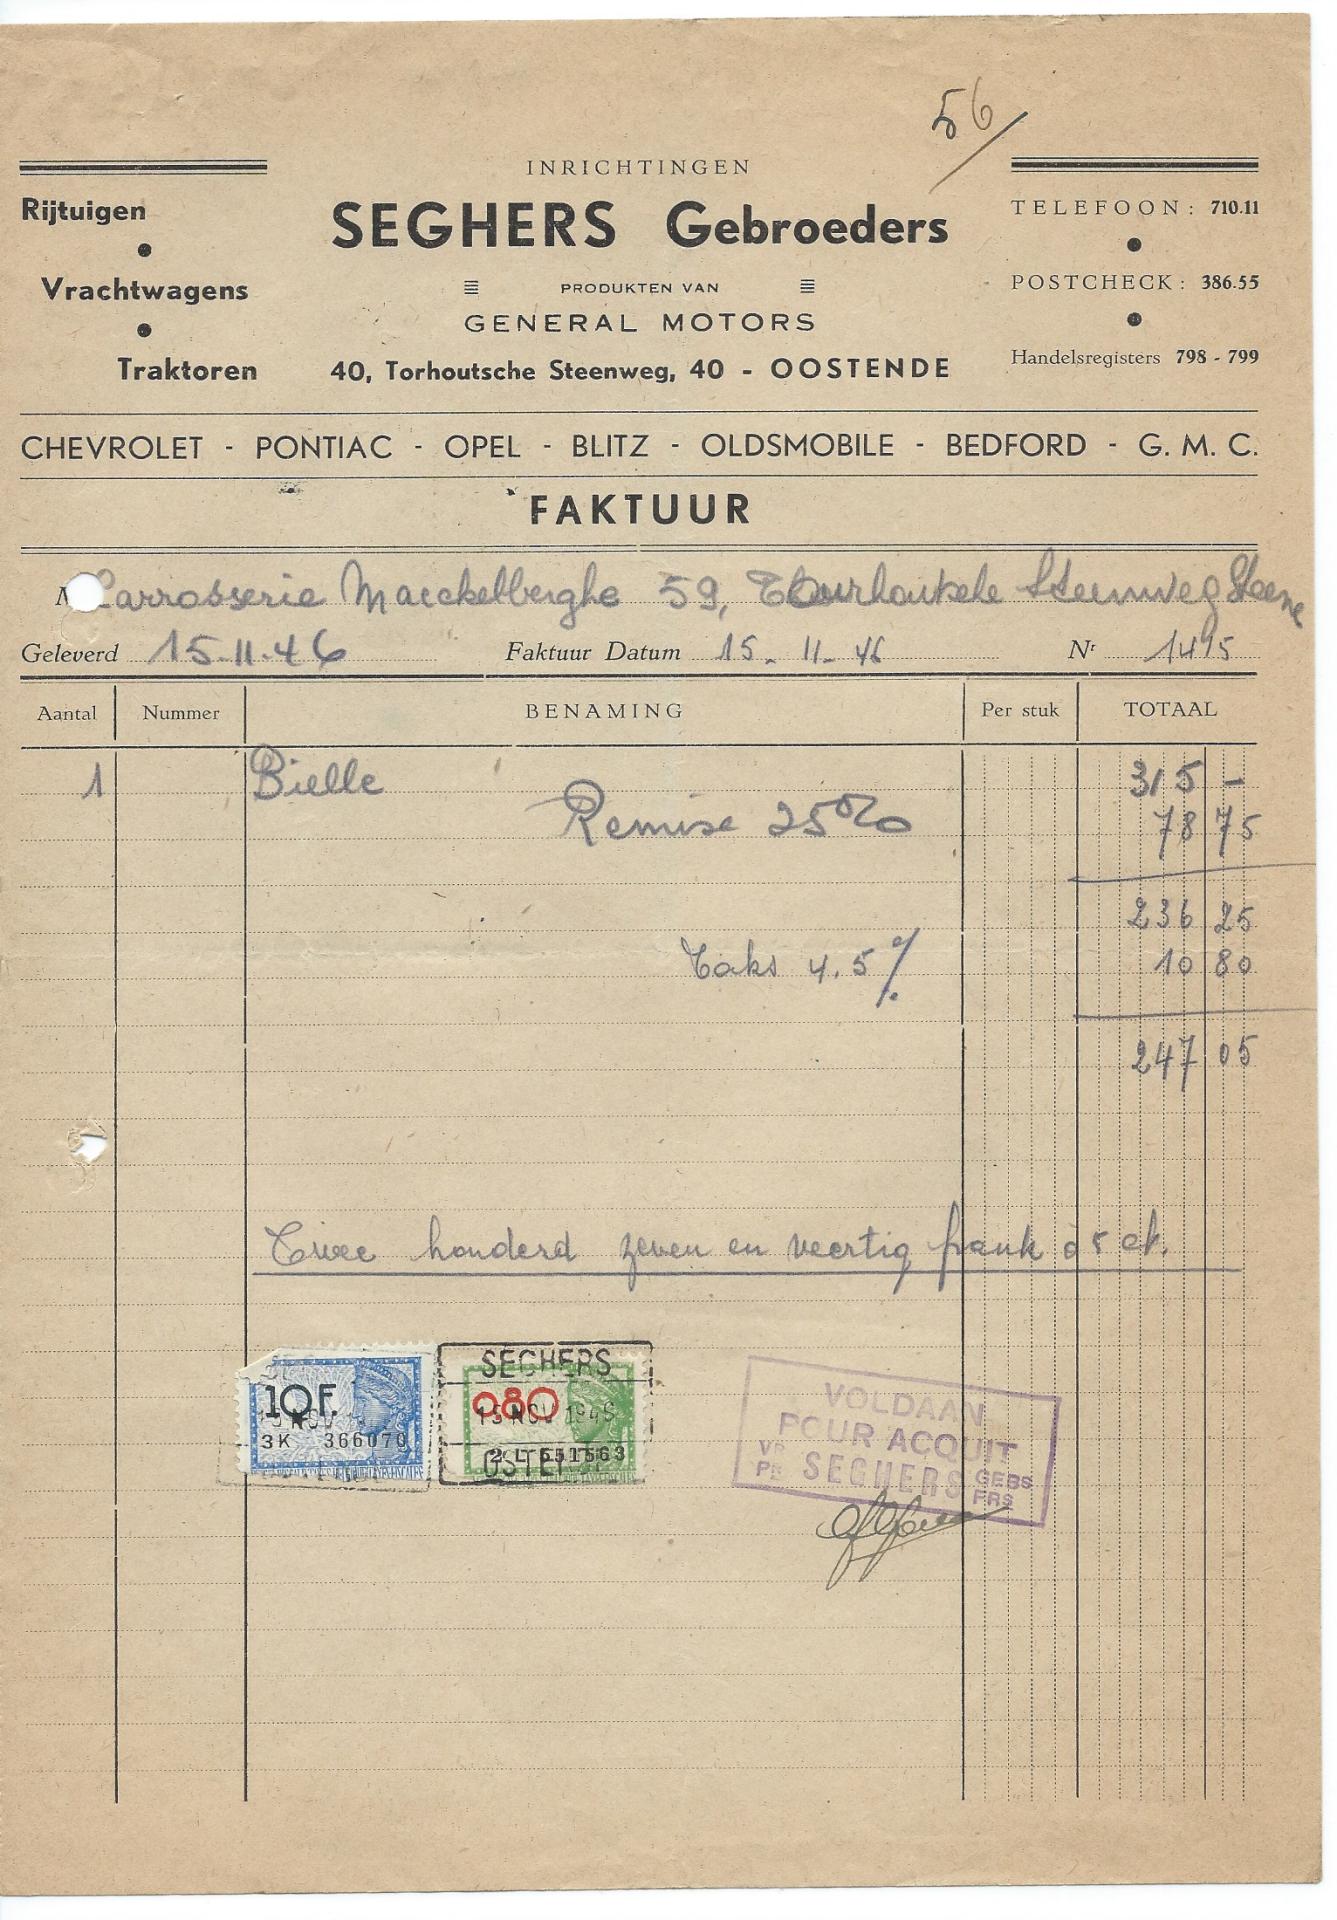 56/
INRICHTINGEN
SEGHERS Gebroeders
PRODUKTEN VAN
GENERAL MOTORS
40, Torhoutsche Steenweg, 40 - OOSTENDE
Rijtuigen
Vrachtwagens
Traktoren
TELEFOON: 710.11
POSTCHECK: 386.55
Handelsregisters 798 - 799
CHEVROLET - PONTIAC - OPEL - BLITZ - OLDSMOBILE - BEDFORD - G. M. C.
FAKTUUR
M Carrosserie Maeckelberghe 59, Steenweg Steene
Geleverd 15.11.46 Faktuur Datum 15. 11. 46 Nr 1495
Aantal Nummer BENAMING Per stuk TOTAAL
1 Bielle 315 -
Remise 25% 78 75
236 25
Taks 4.5% 10 80
247 05
Twee honderd zeven en veertig frank 05 ct.
10 F.
3K 366070
SEGHERS
0.80
15 NOV 1946
2 L 551563
OSTENDE
VOLDAAN
POUR ACQUIT
VR PR SEGHERS GEBS FRS